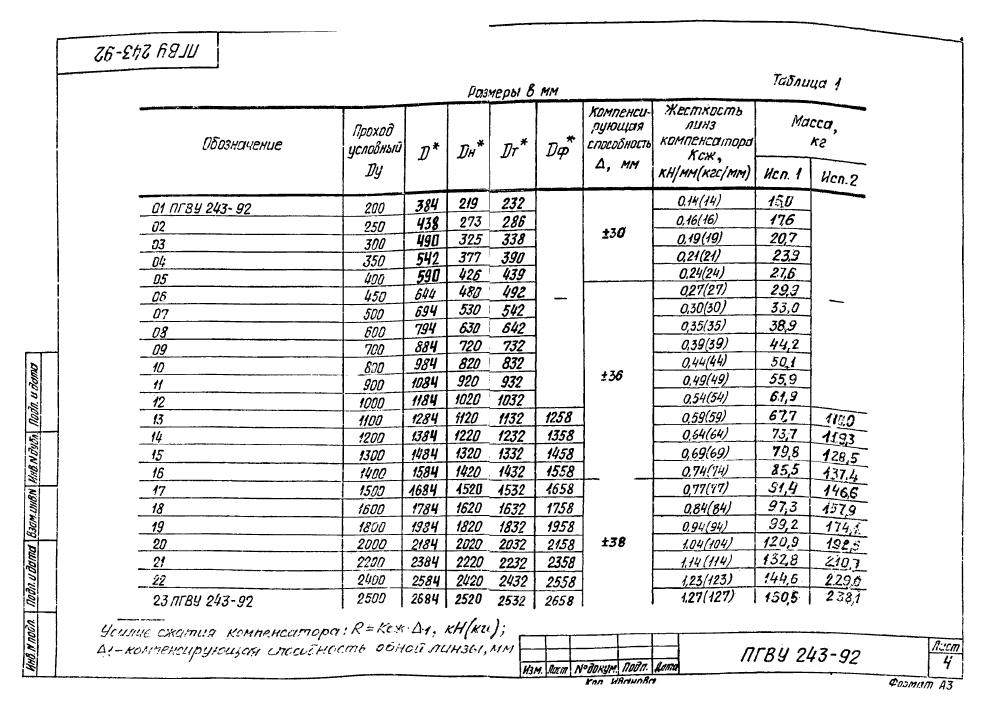 ПГВУ 243-92
Таблица 1
Размеры в мм
Обозначение | Проход условный Dу | D* | Dн* | Dт* | Dф* | Компенси-рующая способность Δ, мм | Жесткость линз компенсатора Kсж, кН/мм(кгс/мм) | Масса, кг Исп. 1 | Исп. 2
01 ПГВУ 243-92 | 200 | 384 | 219 | 232 | — | ±30 | 0,14(14) | 15,0 | —
02 | 250 | 438 | 273 | 286 | 0,16(16) | 17,6
03 | 300 | 490 | 325 | 338 | 0,19(19) | 20,7
04 | 350 | 542 | 377 | 390 | 0,21(21) | 23,9
05 | 400 | 590 | 426 | 439 | 0,24(24) | 27,6
06 | 450 | 644 | 480 | 492 | ±36 | 0,27(27) | 29,3
07 | 500 | 694 | 530 | 542 | 0,30(30) | 33,0
08 | 600 | 794 | 630 | 642 | 0,35(35) | 38,9
09 | 700 | 884 | 720 | 732 | 0,39(39) | 44,2
10 | 800 | 984 | 820 | 832 | 0,44(44) | 50,1
11 | 900 | 1084 | 920 | 932 | 0,49(49) | 55,9
12 | 1000 | 1184 | 1020 | 1032 | 0,54(54) | 61,9
13 | 1100 | 1284 | 1120 | 1132 | 1258 | 0,59(59) | 67,7
14 | 1200 | 1384 | 1220 | 1232 | 1358 | 0,64(64) | 73,7 | 119,3
15 | 1300 | 1484 | 1320 | 1332 | 1458 | 0,69(69) | 79,8 | 128,5
16 | 1400 | 1584 | 1420 | 1432 | 1558 | 0,74(74) | 85,5 | 137,4
17 | 1500 | 1684 | 1520 | 1532 | 1658 | ±38 | 0,77(77) | 91,4 | 146,6
18 | 1600 | 1784 | 1620 | 1632 | 1758 | 0,84(84) | 97,3 | 157,9
19 | 1800 | 1984 | 1820 | 1832 | 1958 | 0,94(94) | 99,2
20 | 2000 | 2184 | 2020 | 2032 | 2158 | 1,04(104) | 120,9
21 | 2200 | 2384 | 2220 | 2232 | 2358 | 1,14(114) | 132,8 | 210,7
22 | 2400 | 2584 | 2420 | 2432 | 2558 | 1,23(123) | 144,6
23 ПГВУ 243-92 | 2500 | 2684 | 2520 | 2532 | 2658 | 1,27(127) | 150,5 | 238,1
Усилие сжатия компенсатора: R = Kсж·Δ1, кН(кг);
Δ1-компенсирующая способность одной линзы, мм
Изм. Лист №докум. Подп. Дата
ПГВУ 243-92
Лист
4
Коп. Иванова
Формат А3
Инв.№ подл. Подп. и дата Взам.инв№ Инв.№дубл. Подп. и дата